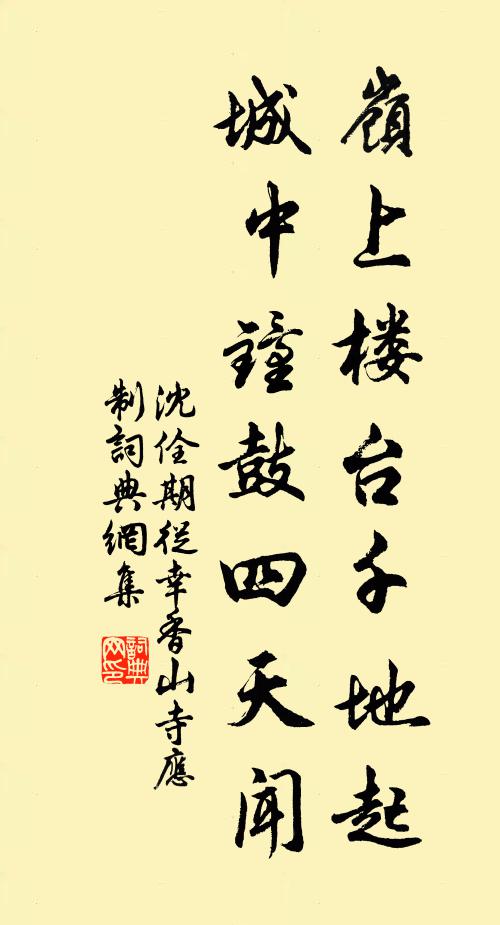 嶺上楼台千地起
城中鐘鼓四天聞
沈佺期從幸香山寺應
制詞典網集
詞典
网印